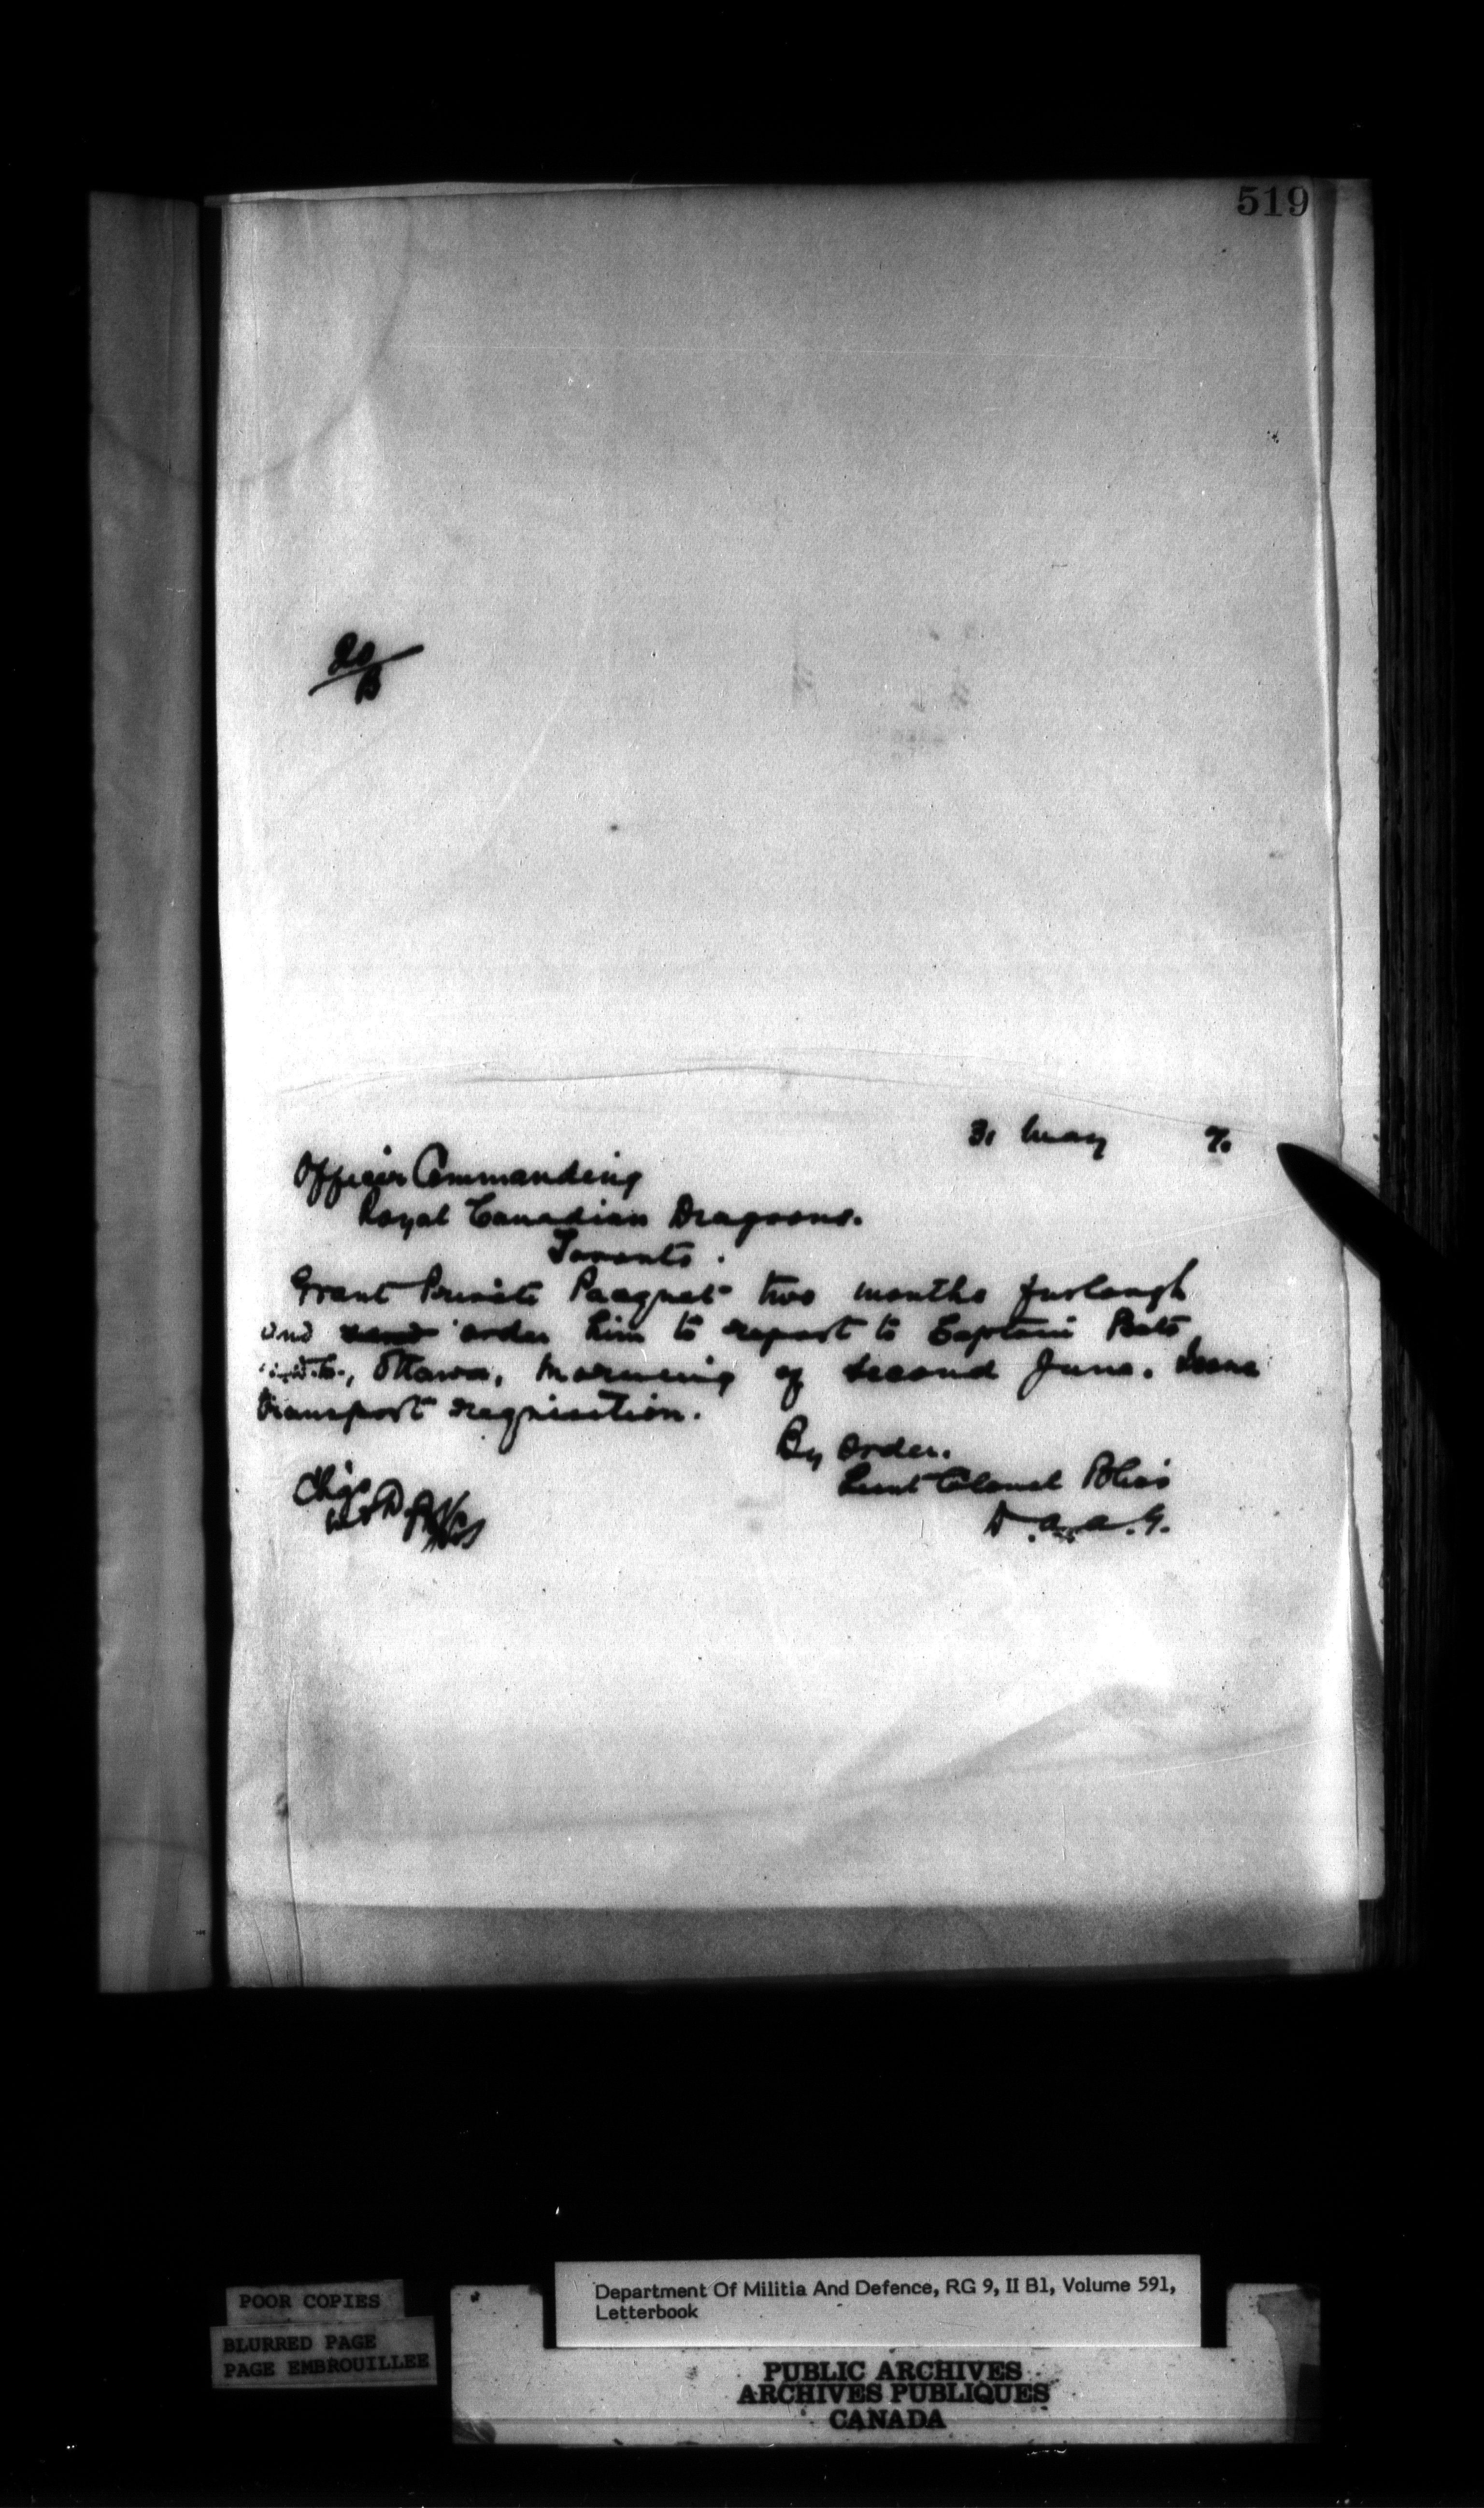 519
20/B
31 May
Officer Commanding
Royal Canadian Dragoons.
Toronto.
Grant Private Paequet two months furlough
and order him to report to Captain Bate
Ottawa, Morning of second June. Issue
transport requisition.
By order.
Lieut Colonel
D.A.A.G.
POOR COPIES
BLURRED PAGE
PAGE EMBROUILLEE
Department Of Militia And Defence, RG 9, II B1, Volume 591,
Letterbook
PUBLIC ARCHIVES
ARCHIVES PUBLIQUES
CANADA